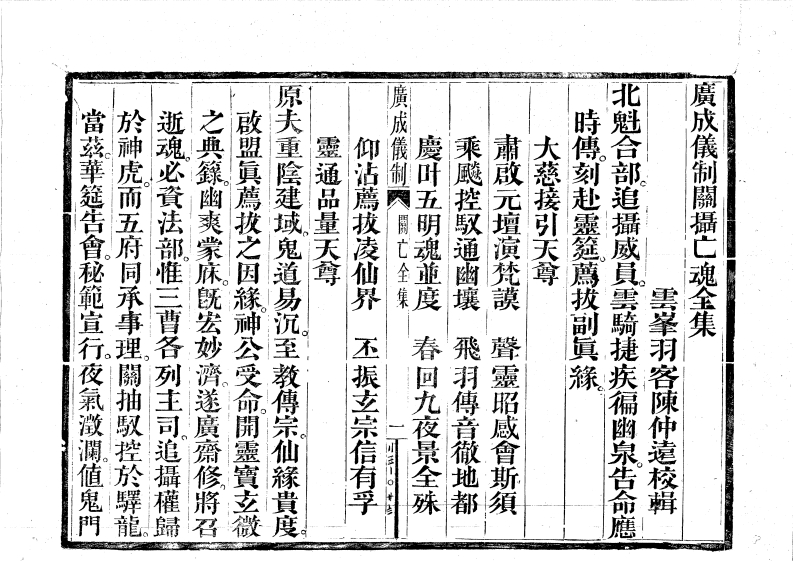 廣成儀制關攝亡魂全集
雲峯羽客陳仲遠校輯
北魁合部追攝威員。雲騎捷疾徧幽泉。告命應
時傳。刻赴靈筵。薦拔副眞緣。
大慈接引天尊
肅啟元壇演梵謨　聲靈昭感會斯須
乘飈控馭通幽壤　飛羽傳音徹地都
慶叶五明魂並度　春回九夜景全殊
廣成儀制　關亡全集　一
仰沾薦拔凌仙界　丕振玄宗信有孚
靈通品量天尊
原夫重陰建域。鬼道易沉。至教傳宗。仙緣貴度。
啟盟眞薦拔之因緣。神公受命。開靈寶玄微
之典籙。幽爽蒙庥。既宏妙濟。遂廣齋修。將召
逝魂。必資法部。惟三曹各列主司。追攝權歸
於神虎。而五府同承事理。關抽馭控於驛龍。
當茲華筵告會。秘範宣行。夜氣澂瀾。值鬼門